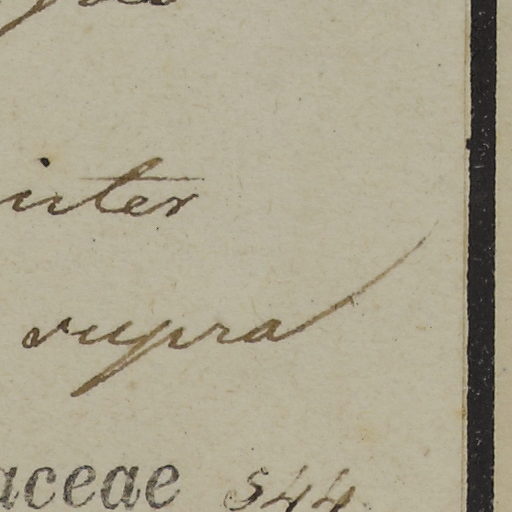 inter
supra
aceae 544